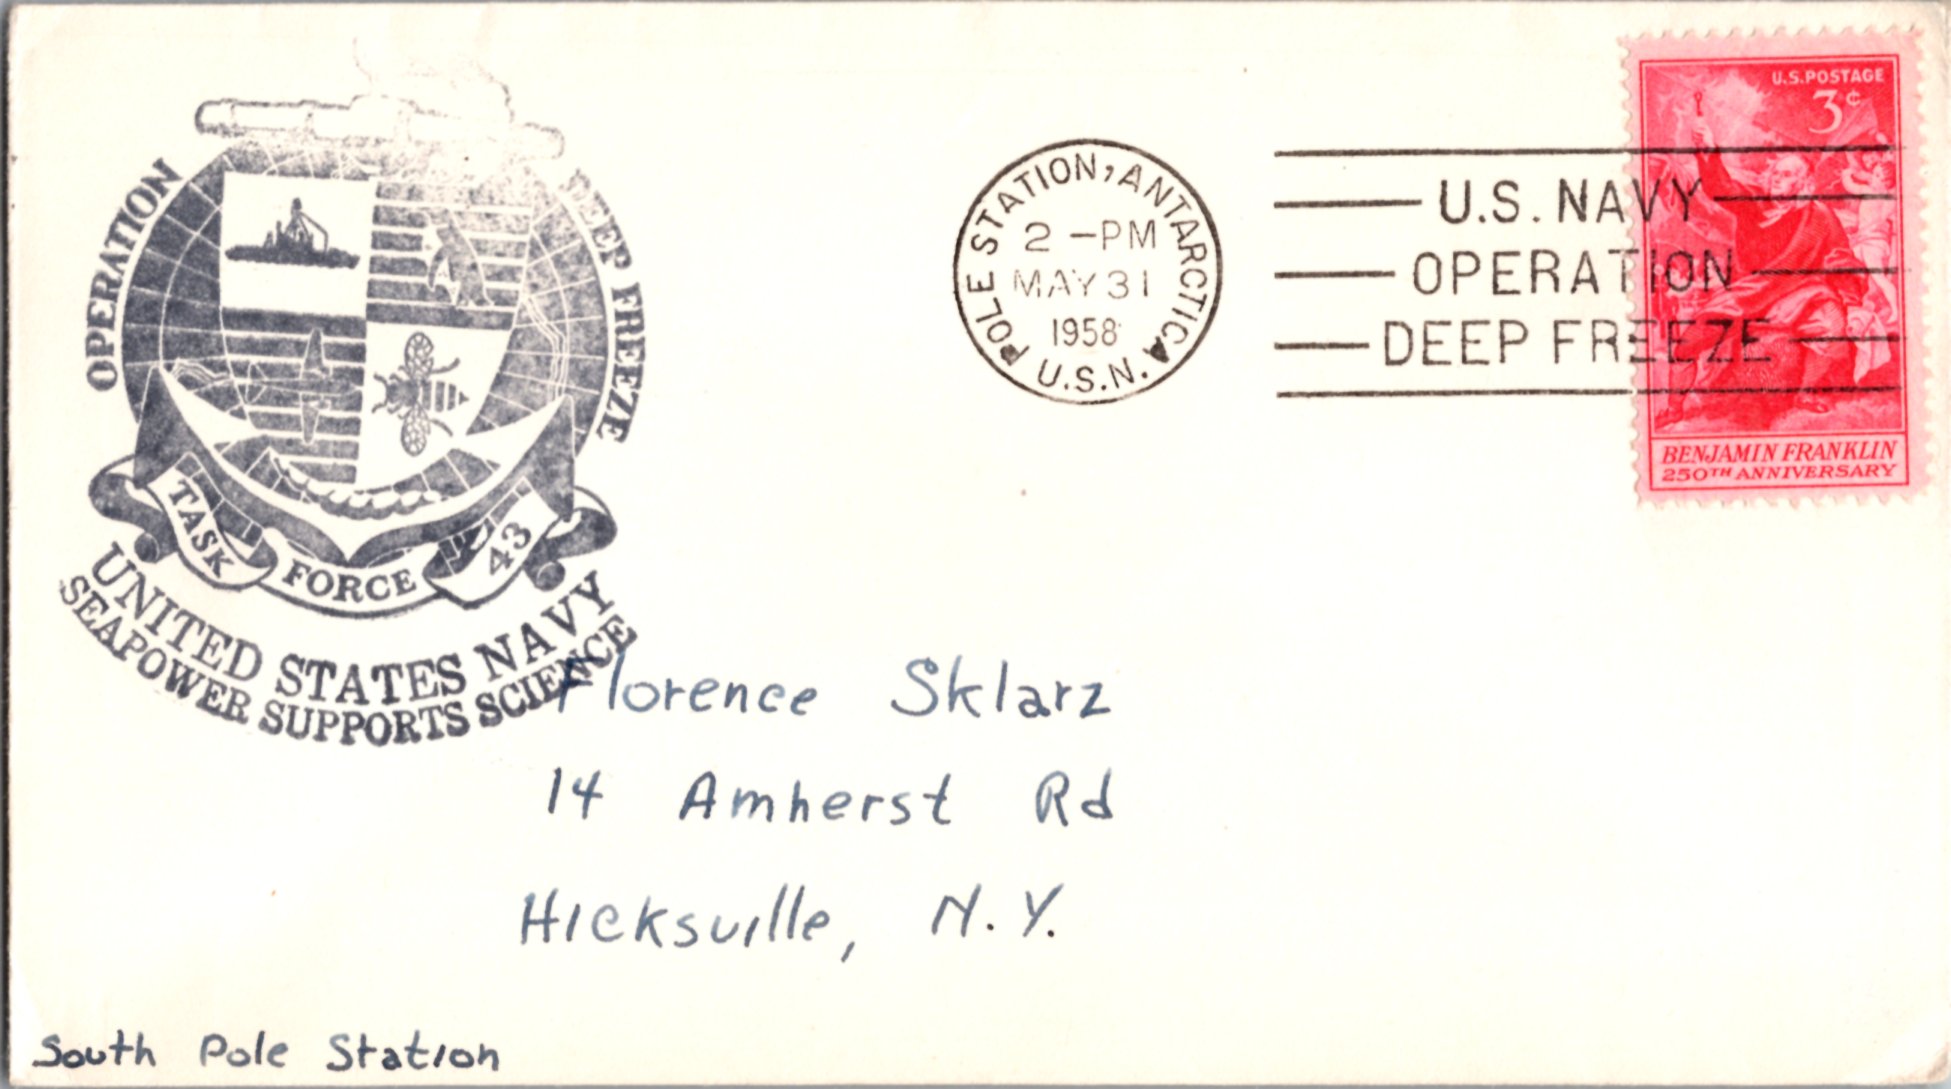 OPERATION DEEP FREEZE
TASK FORCE 43
UNITED STATES NAVY
SEAPOWER SUPPORTS SCIENCE
POLE STATION, ANTARCTICA
2 -PM
MAY 31
1958
U.S.N.
U.S. NAVY
OPERATION
DEEP FREEZE
U.S. POSTAGE
3¢
BENJAMIN FRANKLIN
250TH ANNIVERSARY
Florence Sklarz
14 Amherst Rd
Hicksville, N.Y.
South Pole Station